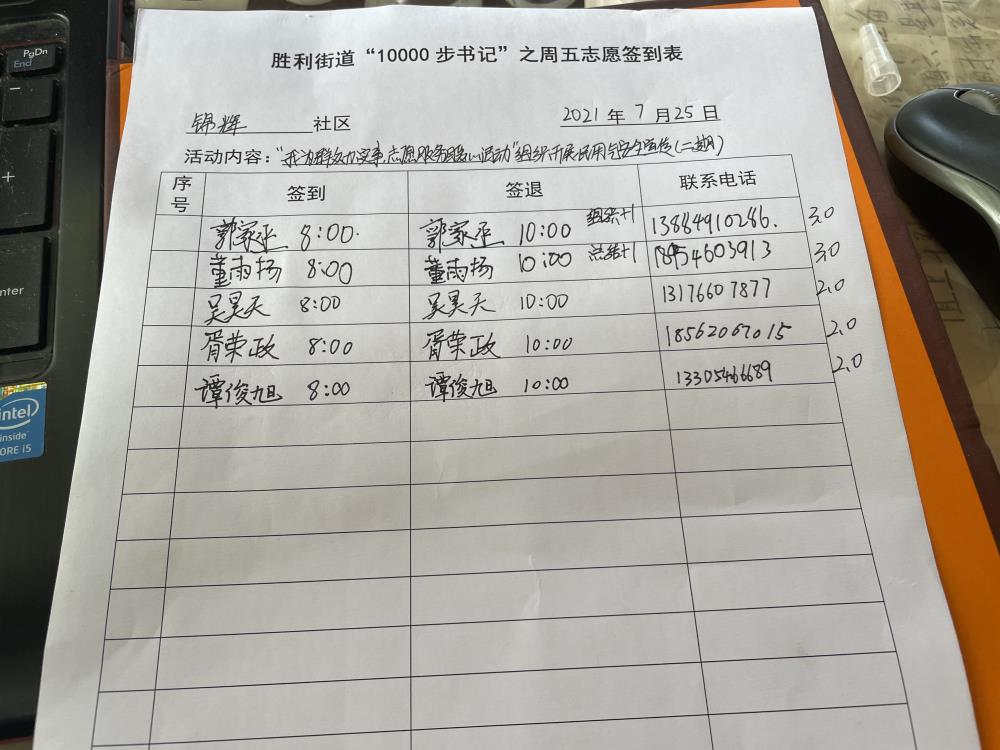 胜利街道“10000步书记”之周五志愿签到表
锦辉 社区 2021年7月25日
活动内容:“我为群众办实事,志愿服务暖心运动”组织开展民用气安全宣传(二期)
序号 签到 签退 联系电话
郭家丞 8:00. 郭家丞 10:00 组织+1 13884910286. 3.0
董雨扬 8:00 董雨扬 10:00 总结+1 18954603913 3.0
吴昊天 8:00 吴昊天 10:00 13176607877 2.0
胥荣政 8:00 胥荣政 10:00 18562067015 2.0
谭俊旭 8:00 谭俊旭 10:00 13305466689 2.0
PgDn
End
+
nter
intel
inside
ORE i5